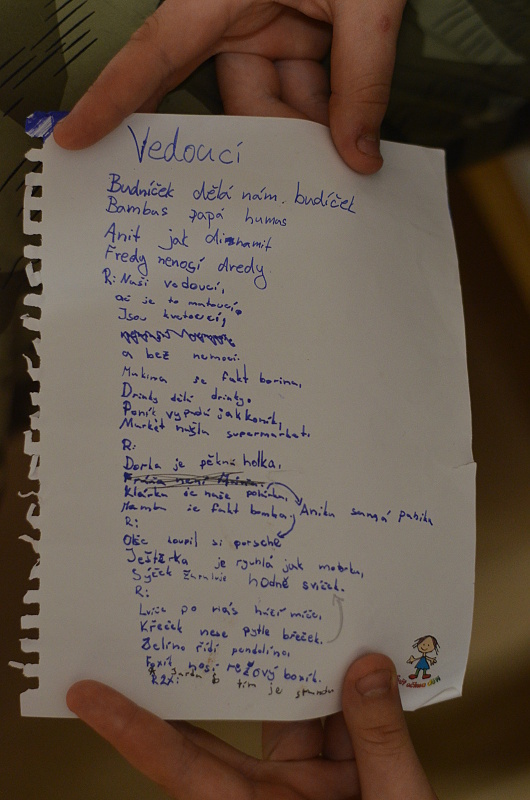 Vedoucí
Budníček dělá nám budíček
Bambus papá humas
Anit jak dinamit
Fredy nenosí dredy
R: Naši vedoucí,
ač je to matoucí,
Jsou kvetoucí,
a bez nemoci.
Makina se fakt borina,
Drinky dělá drinky.
Poník vypadá jak koník,
Markét našla supermarket.
R:
Dorka je pěkná holka,
Klárka je naše
Mamba je fakt bomba, Anika samá panika
R:
Oťče koupil si porsche
Ještěrka je rychlá jak motorka,
Sýček žaruje hodně svíček.
R:
Lvíče po nás hází míče,
Křeček nese pytle břeček.
Želino řídí pendolino,
Foxík nosí režový boxík.
R2x: je